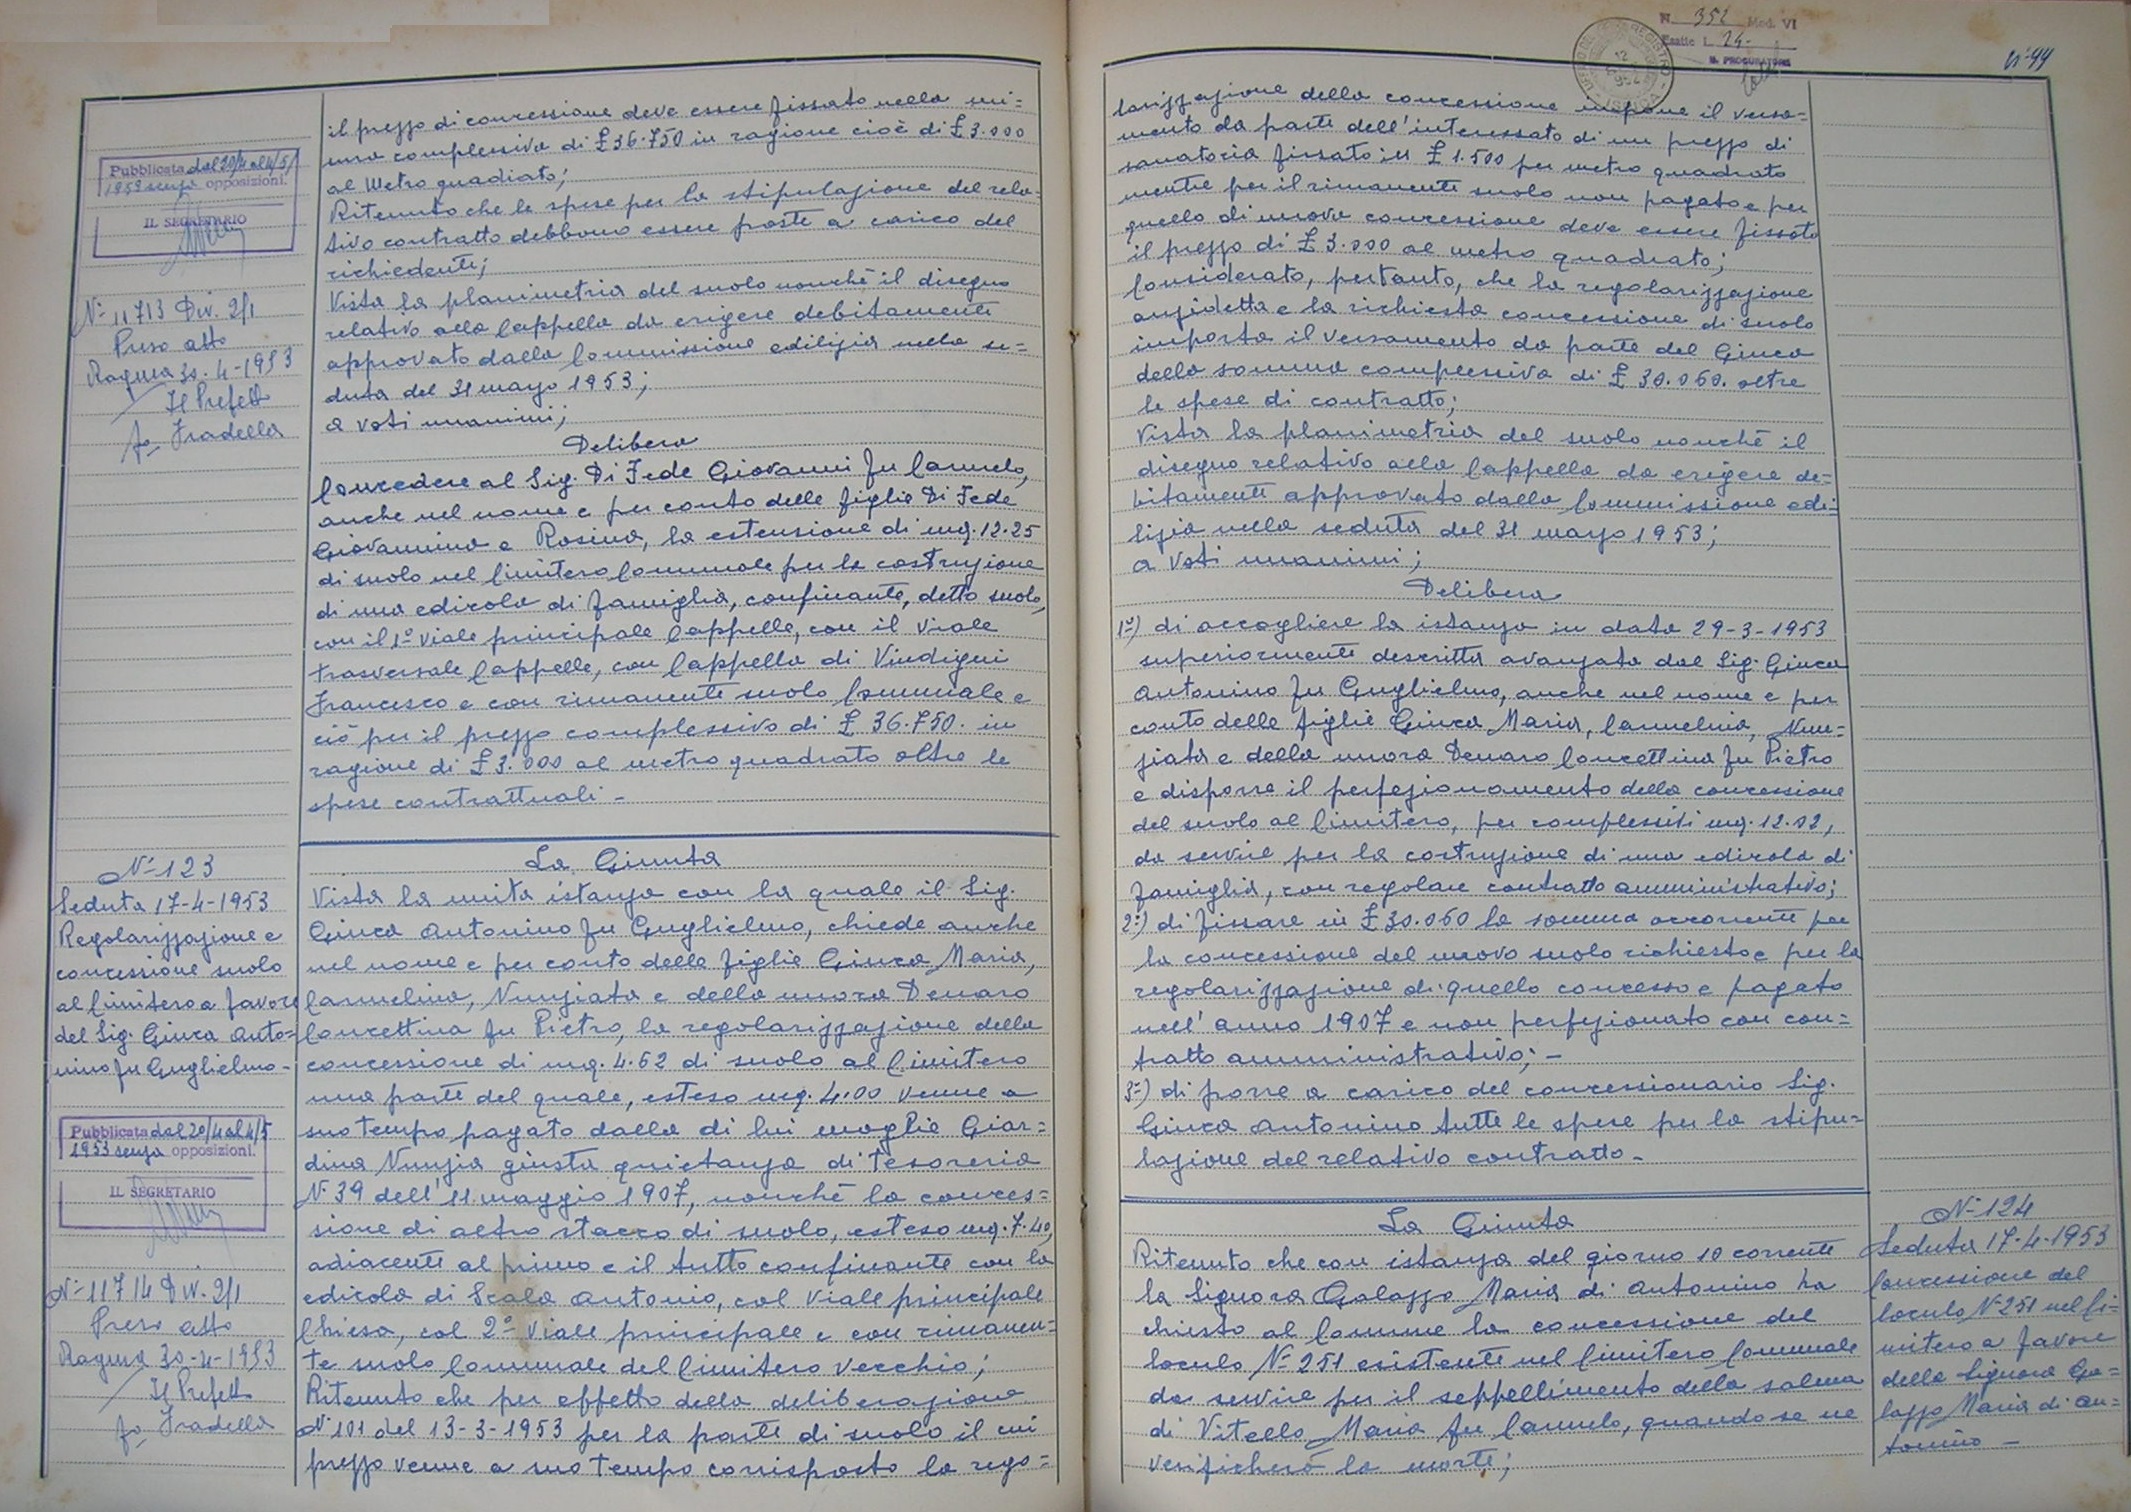 Pubblicata dal 20/4 al 4/5/
1953 senza opposizioni.
IL SEGRETARIO
N° 11713 Div. 2/1
Preso atto
Ragusa 30-4-1953
Il Prefetto
fo Fradella
il prezzo di concessione deve essere fissato nella mi=
ura complessiva di £ 36.750 in ragione cioè di £ 3.000
al Metro quadrato;
Ritenuto che le spese per la stipulazione del rela=
tivo contratto debbono essere poste a carico del
richiedente;
Vista la planimetria del suolo nonchè il disegno
relativo alla Cappella da erigere debitamente
approvato dalla Commissione edilizia nella se=
duta del 31 marzo 1953;
a voti unanimi;
Delibera
Concedere al Sig. Di Fede Giovanni fu Carmelo,
anche nel nome e per conto delle figlie Di Fede
Giovannina e Rosina, la estensione di mq. 12.25
di suolo nel Cimitero Comunale per la costruzione
di una edicola di famiglia, confinante, detto suolo,
con il 1° viale principale Cappelle, con il viale
trasversale Cappelle, con Cappella di Vindigni
Francesco e con rimanente suolo Comunale e
ciò per il prezzo complessivo di £ 36.750. in
ragione di £ 3.000 al metro quadrato oltre le
spese contrattuali -
N° 123
Seduta 17-4-1953
Regolarizzazione e
concessione suolo
al Cimitero a favore
del Sig. Giuca Anto=
nino fu Guglielmo -
Pubblicata dal 20/4 al 4/5
1953 senza opposizioni.
IL SEGRETARIO
N° 11714 Div. 2/1
Preso atto
Ragusa 30-4-1953
Il Prefetto
fo Fradella
La Giunta
Vista la unita istanza con la quale il Sig.
Giuca Antonino fu Guglielmo, chiede anche
nel nome e per conto delle figlie Giuca Maria,
Carmelina, Nunziata e della nuora Denaro
Concettina fu Pietro, la regolarizzazione della
concessione di mq. 4.62 di suolo al Cimitero
una parte del quale, esteso mq. 4.00 venne a
suo tempo pagato dalla di lui moglie Giar=
dina Nunzia giusta quietanza di tesoreria
N. 39 dell'11 maggio 1907, nonchè la conces=
sione di altro stacco di suolo, esteso mq. 7.40,
adiacente al primo e il tutto confinante con la
edicola di Scala Antonio, col viale principale
Chiesa, col 2° viale principale e con rimanen=
te suolo Comunale del Cimitero vecchio;
Ritenuto che per effetto della deliberazione
N° 101 del 13-3-1953 per la parte di suolo il cui
prezzo venne a suo tempo corrisposto la rego=
N. 352 Mod. VI
Esatte L. 24.
IL PROCURATORE
larizzazione della concessione impone il versa=
mento da parte dell'interessato di un prezzo di
sanatoria fissato in £ 1.500 per metro quadrato
mentre per il rimanente suolo non pagato e per
quello di nuova concessione deve essere fissato
il prezzo di £ 3.000 al metro quadrato;
Considerato, pertanto, che la regolarizzazione
anzidetta e la richiesta concessione di suolo
importa il versamento da parte del Giuca
della somma complessiva di £ 30.060. oltre
le spese di contratto;
Vista la planimetria del suolo nonchè il
disegno relativo alla Cappella da erigere de=
bitamente approvato dalla Commissione edi=
lizia nella seduta del 31 marzo 1953;
a voti unanimi;
Delibera
1°) di accogliere la istanza in data 29-3-1953
superiormente descritta avanzata dal Sig. Giuca
Antonino fu Guglielmo, anche nel nome e per
conto delle figlie Giuca Maria, Carmelina, Nun=
ziata e della nuora Denaro Concettina fu Pietro
e disporre il perfezionamento della concessione
del suolo al Cimitero, per complessivi mq. 12.02,
da servire per la costruzione di una edicola di
famiglia, con regolare contratto amministrativo;
2°) di fissare in £ 30.060 la somma occorrente per
la concessione del nuovo suolo richiesto e per la
regolarizzazione di quello concesso e pagato
nell'anno 1907 e non perfezionato con con=
tratto amministrativo; -
3°) di porre a carico del concessionario Sig.
Giuca Antonino tutte le spese per la stipu=
lazione del relativo contratto -
La Giunta
Ritenuto che con istanza del giorno 10 corrente
la Signora Galazzo Maria di Antonino ha
chiesto al Comune la concessione del
loculo N° 251 esistente nel Cimitero Comunale
da servire per il seppellimento della salma
di Vitello Maria fu Carmelo, quando se ne
verificherà la morte;
N° 124
Seduta 17-4-1953
Concessione del
loculo N° 251 nel Ci=
mitero a favore
della Signora Ga=
lazzo Maria di An=
tonino -